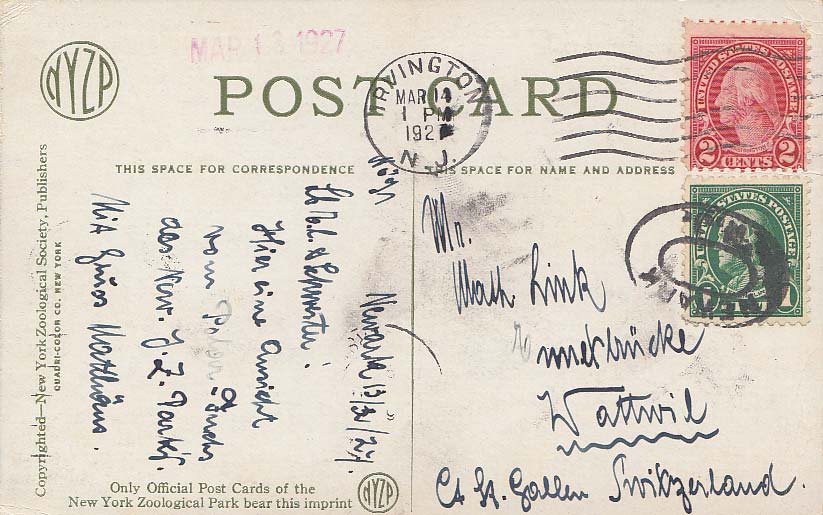 NYZP
MAR 13 1927
POST CARD
IRVINGTON
MAR 14
1 PM
1927
N. J.
UNITED STATES POSTAGE
2 CENTS 2
THIS SPACE FOR CORRESPONDENCE
THIS SPACE FOR NAME AND ADDRESS
STATES POSTAGE
1
NEWARK
Newark 13/3/27.
Hier eine Ansicht
vom
des New. Y. Z. Park's.
Mit Gruss Matthäus.
Mr.
Math Link
Wattwil
Ct St. Gallen Switzerland.
Copyrighted—New York Zoological Society, Publishers
QUADRI-COLOR CO. NEW YORK
Only Official Post Cards of the
New York Zoological Park bear this imprint
NYZP